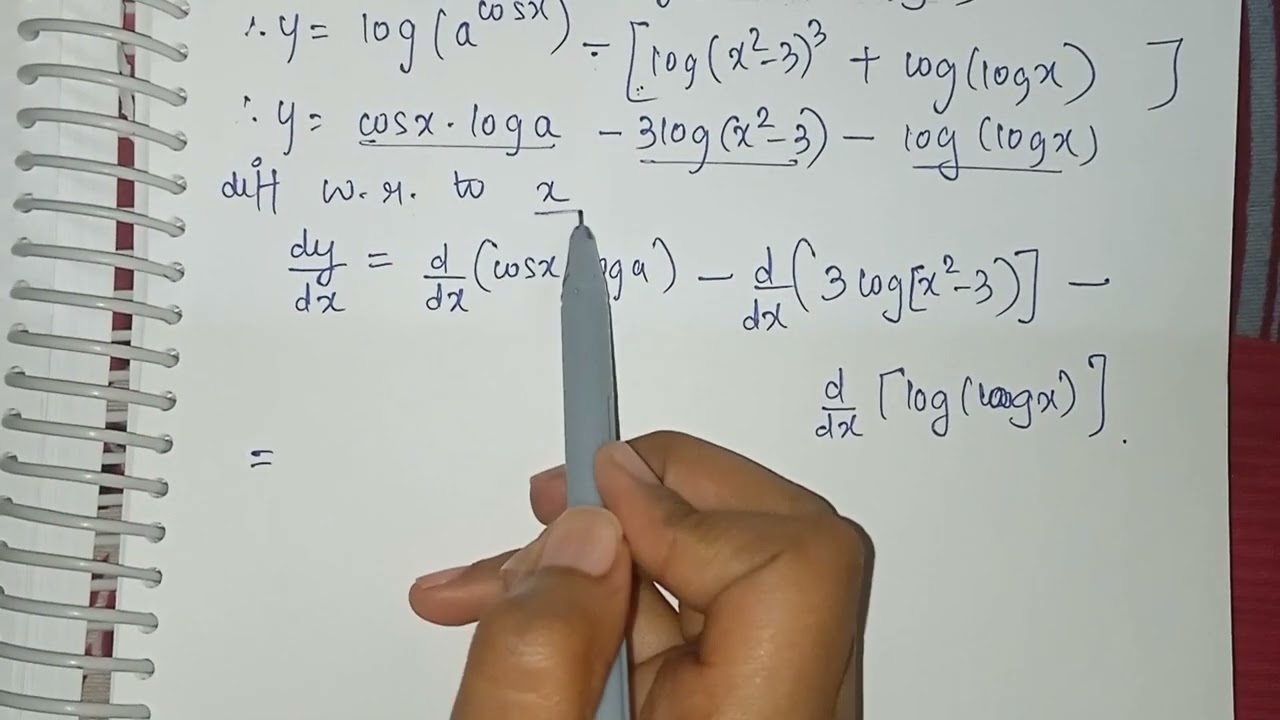 ∴ y = log(a^cosx) - [log(x²-3)³ + log(logx) ]
∴ y = cosx · loga - 3log(x²-3) - log (logx)
diff w.r. to x
dy/dx = d/dx (cosx loga) - d/dx (3 log[x²-3)] -
d/dx [log(logx)].
=